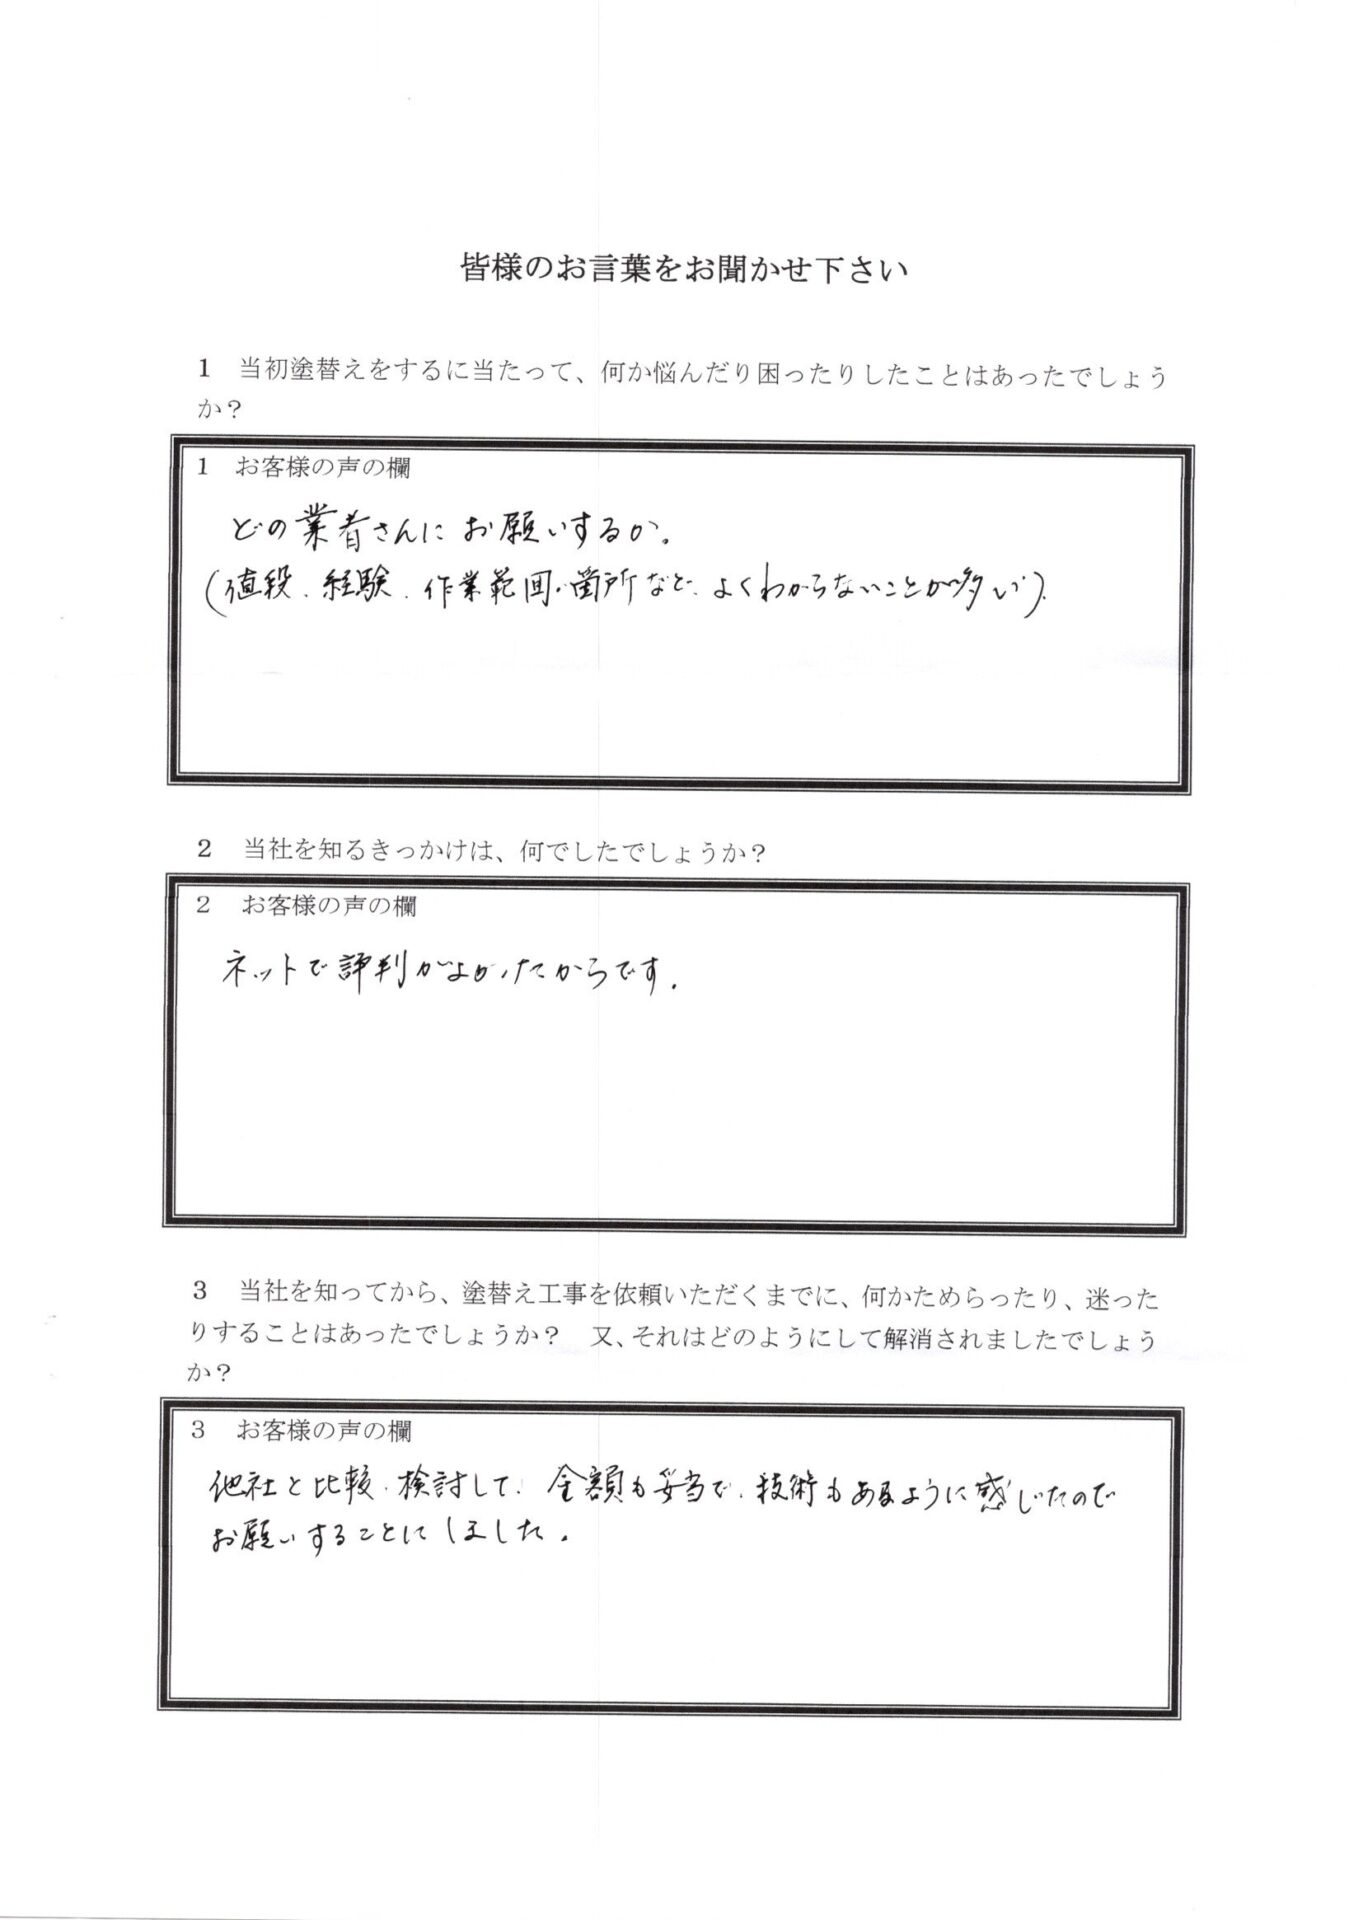 皆様のお言葉をお聞かせ下さい
1　当初塗替えをするに当たって、何か悩んだり困ったりしたことはあったでしょう
か？
1　お客様の声の欄
どの業者さんにお願いするか。
(値段、経験、作業範囲・箇所など、よくわからないことが多い)。
2　当社を知るきっかけは、何でしたでしょうか？
2　お客様の声の欄
ネットで評判がよかったからです。
3　当社を知ってから、塗替え工事を依頼いただくまでに、何かためらったり、迷った
りすることはあったでしょうか？　又、それはどのようにして解消されましたでしょう
か？
3　お客様の声の欄
他社と比較、検討して、金額も妥当で、技術もあるように感じたので
お願いすることにしました。